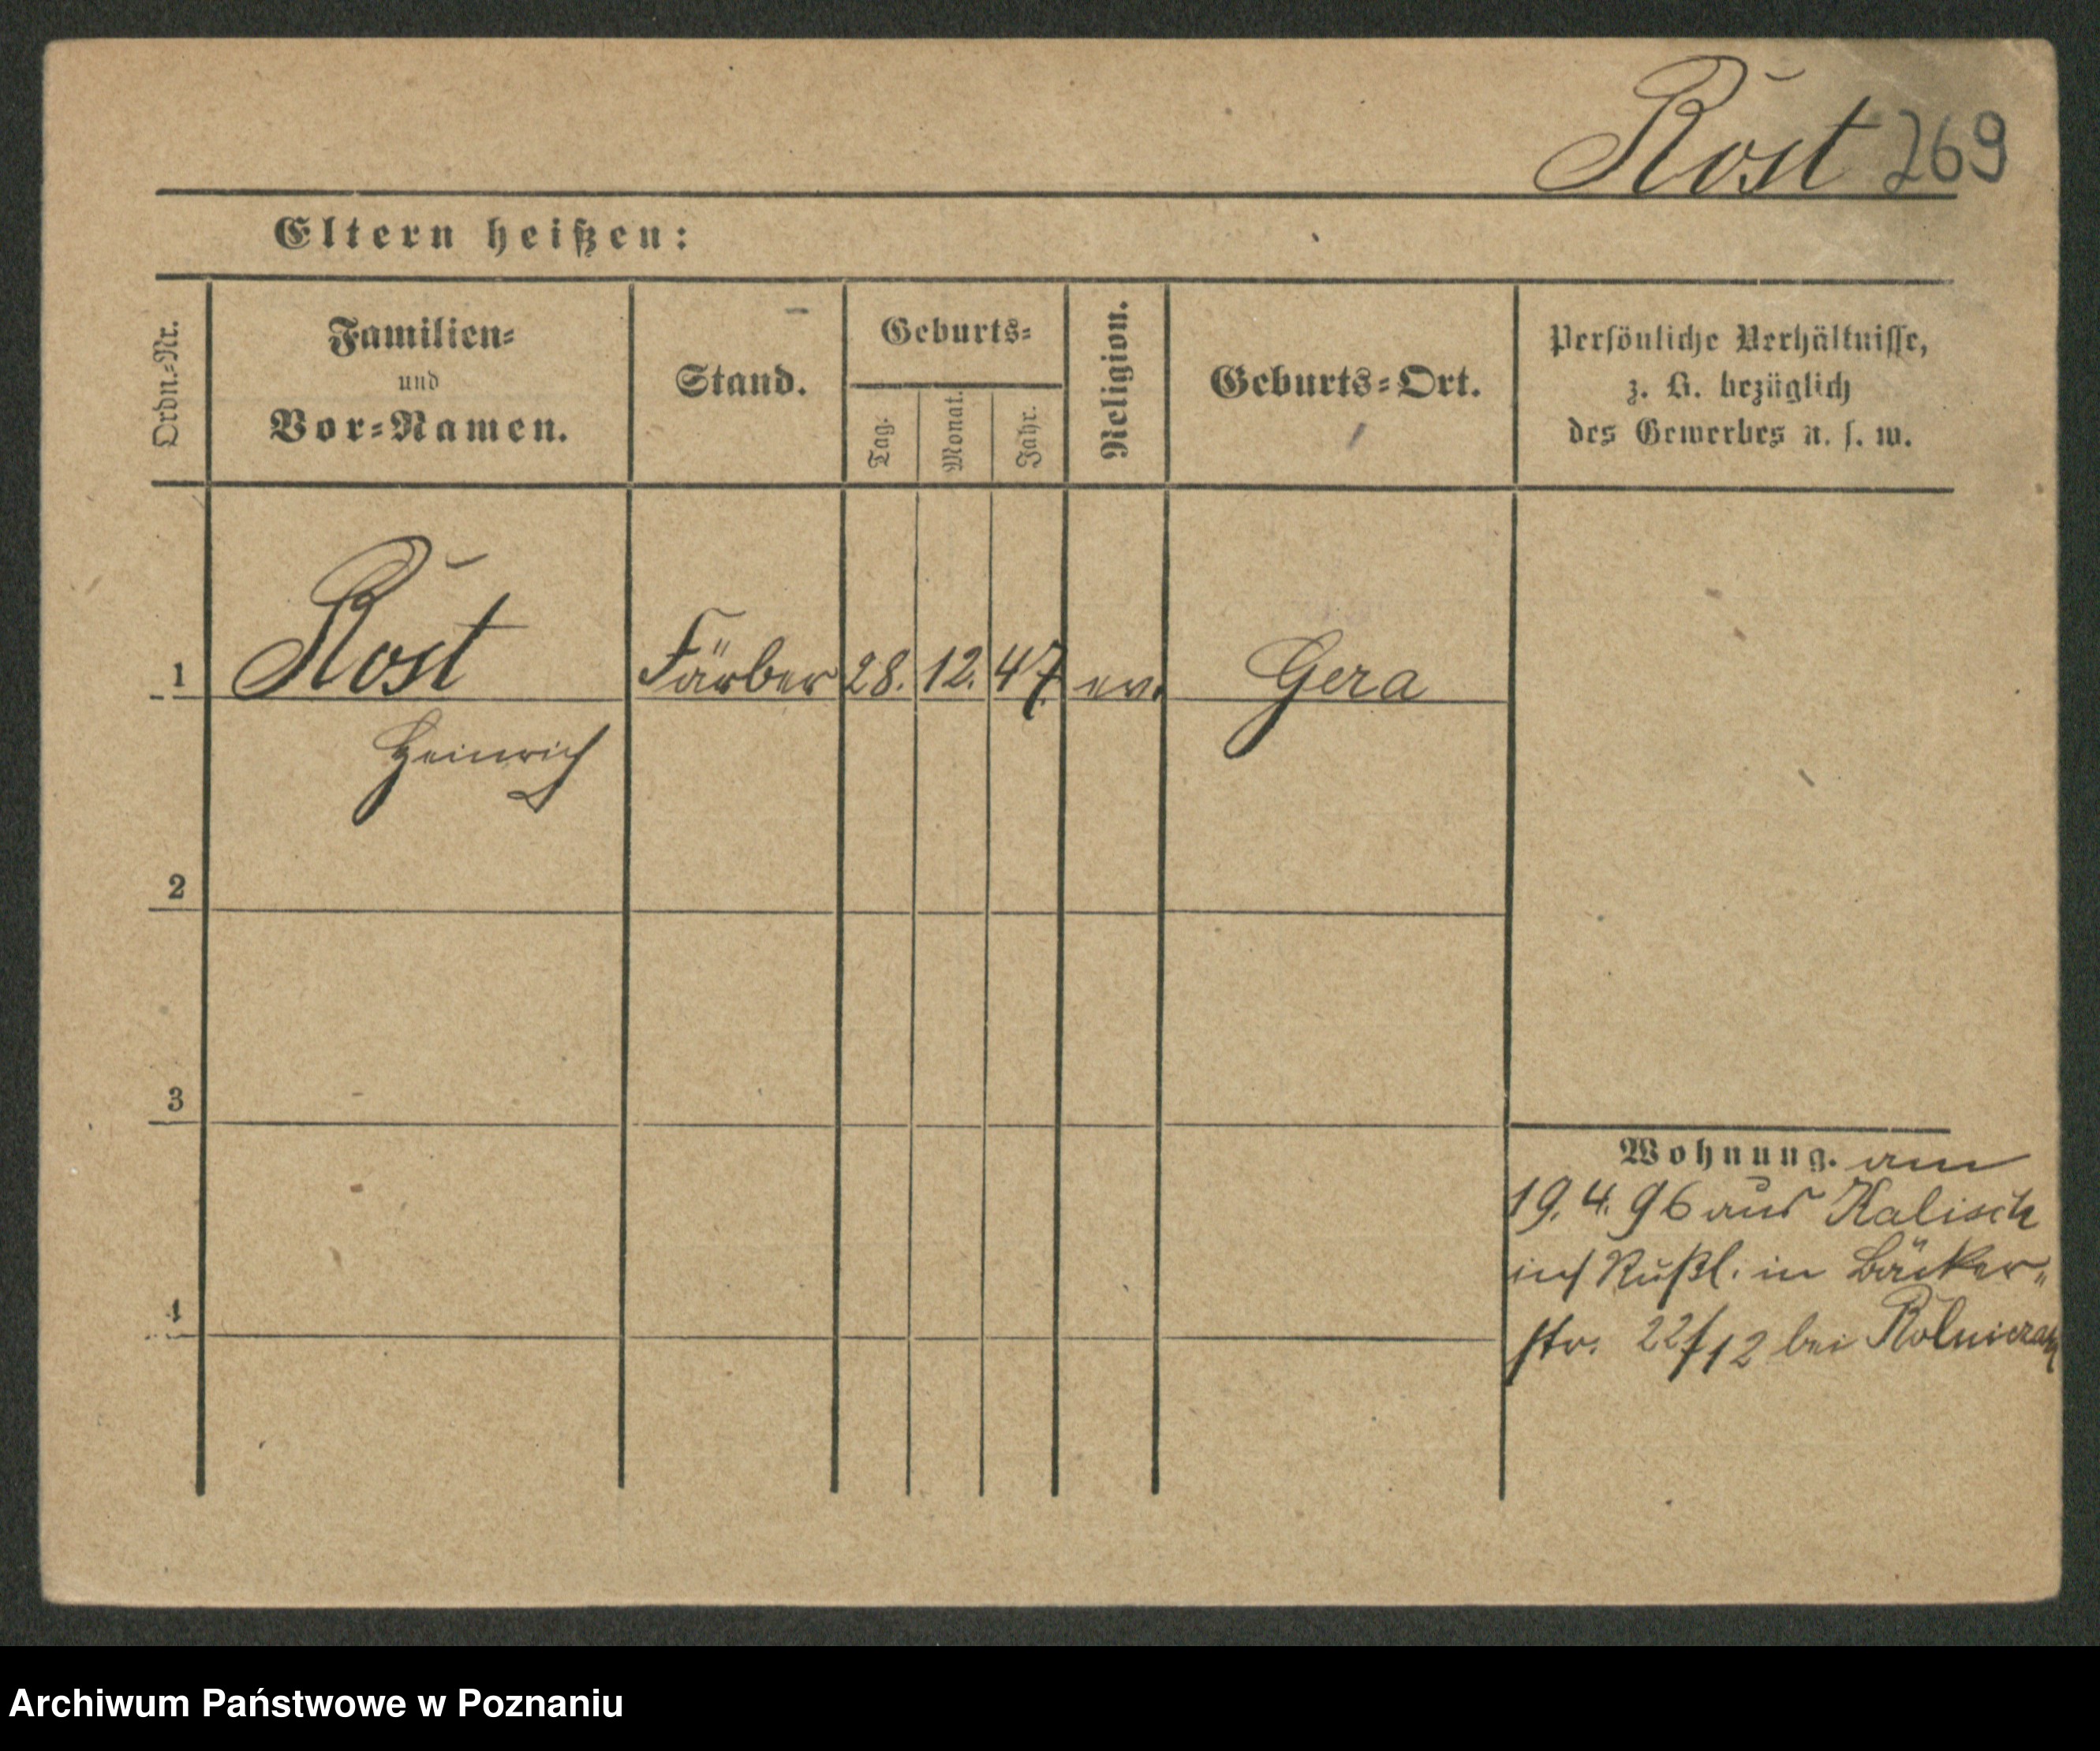 Rost 269
Eltern heißen:
Ordn.-Nr.
Familien-
und
Vor-Namen.
Stand.
Geburts-
Tag.
Monat.
Jahr.
Religion.
Geburts-Ort.
Persönliche Verhältnisse,
z. B. bezüglich
des Gewerbes u. s. w.
1 Rost Färber 28. 12. 47. ev. Gera
Heinrich
2
3
4
Wohnung. am
19. 4. 96 aus Kalisch
in Rußl. in Bäcker-
str. 22/12 bei
Archiwum Państwowe w Poznaniu